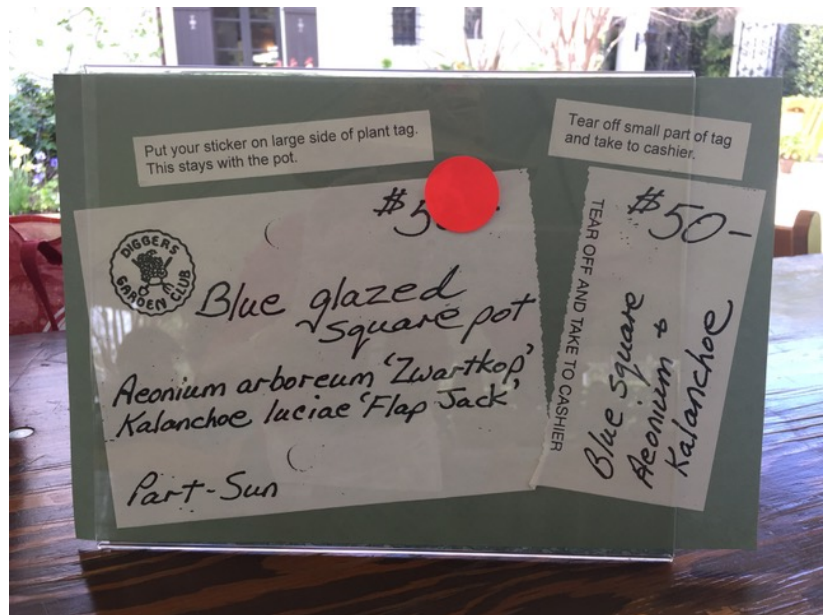 Put your sticker on large side of plant tag.
This stays with the pot.
Tear off small part of tag
and take to cashier.
$5
DIGGERS
GARDEN CLUB
Blue glazed
square pot
Aeonium arboreum 'Zwartkop'
Kalanchoe luciae 'Flap Jack'
Part-Sun
TEAR OFF AND TAKE TO CASHIER
$50-
Blue Square
Aeonium +
Kalanchoe